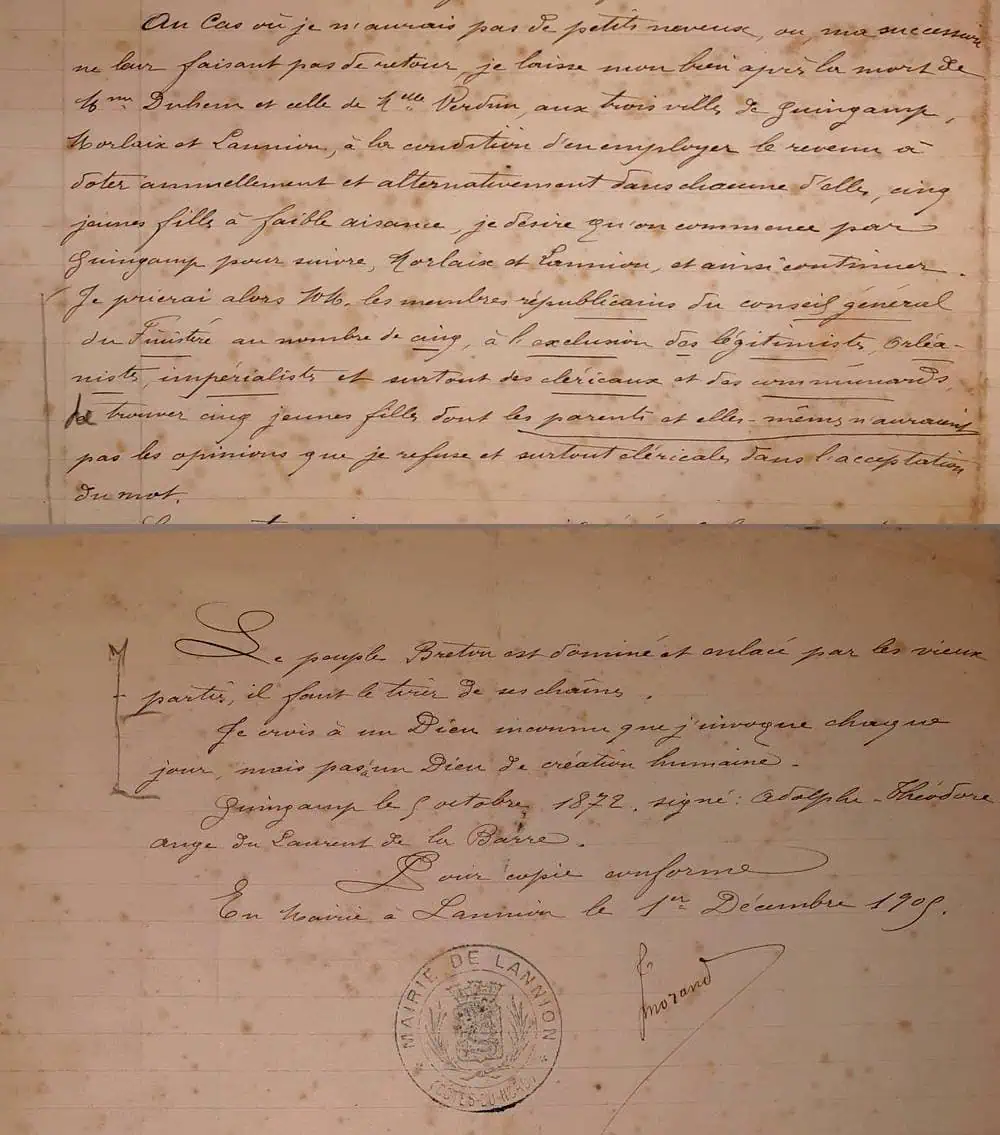 Au Cas où je n'aurais pas de petits neveux, ou, ma succession
ne leur faisant pas de retour, je laisse mon bien après la mort de
Mme Duhem et celle de Melle Verdun, aux trois villes de Guingamp,
Morlaix et Lannion, à la condition d'en employer le revenu à
doter annuellement et alternativement dans chacune d'elles, cinq
jeunes filles à faible aisance, je désire qu'on commence par
Guingamp pour suivre, Morlaix et Lannion, et ainsi continuer.
Je prierai alors MM. les membres républicains du conseil général
du Finistère au nombre de cinq, à l'exclusion des légitimistes, orléa-
nistes, impérialistes et surtout des cléricaux et des communards,
de trouver cinq jeunes filles dont les parents et elles-mêmes n'auraient
pas les opinions que je refuse et surtout cléricales dans l'acceptation
du mot.
Le peuple Breton est dominé et enlacé par les vieux
partis, il faut le tirer de ses chaînes.
Je crois à un Dieu inconnu que j'invoque chaque
jour, mais pas à un Dieu de création humaine.
Guingamp le 5 octobre 1872. signé: Adolphe-Théodore
ange du Laurent de la Barre.
Pour copie conforme
En Mairie à Lannion le 1er Décembre 1905.
Morand
MAIRIE DE LANNION
CÔTES-DU-NORD